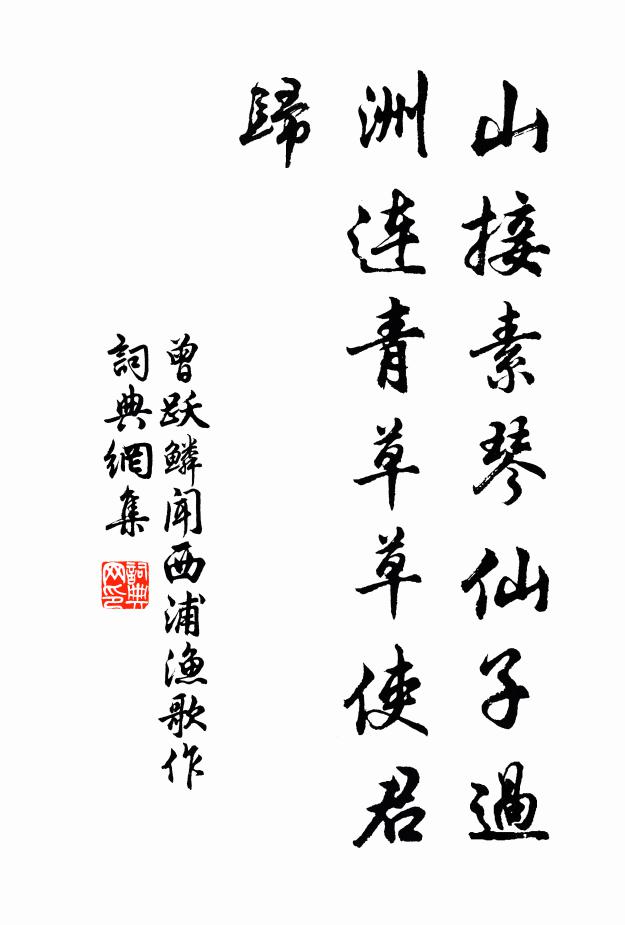 山接素琴仙子過
洲连青草草使君
歸
曾跃鳞闻西浦渔歌作
詞典網集
詞典网印